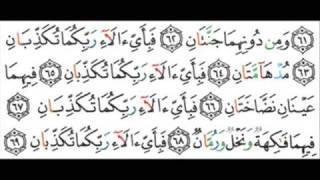 ٦١ وَمِن دُونِهِمَا جَنَّتَانِ ٦٢ فَبِأَيِّ ءَالَآءِ رَبِّكُمَا تُكَذِّبَانِ
٦٣ مُدْهَآمَّتَانِ ٦٤ فَبِأَيِّ ءَالَآءِ رَبِّكُمَا تُكَذِّبَانِ ٦٥ فِيهِمَا
عَيْنَانِ نَضَّاخَتَانِ ٦٦ فَبِأَيِّ ءَالَآءِ رَبِّكُمَا تُكَذِّبَانِ ٦٧
فِيهِمَا فَٰكِهَةٌ وَنَخْلٌ وَرُمَّانٌ ٦٨ فَبِأَيِّ ءَالَآءِ رَبِّكُمَا تُكَذِّبَانِ ٦٩